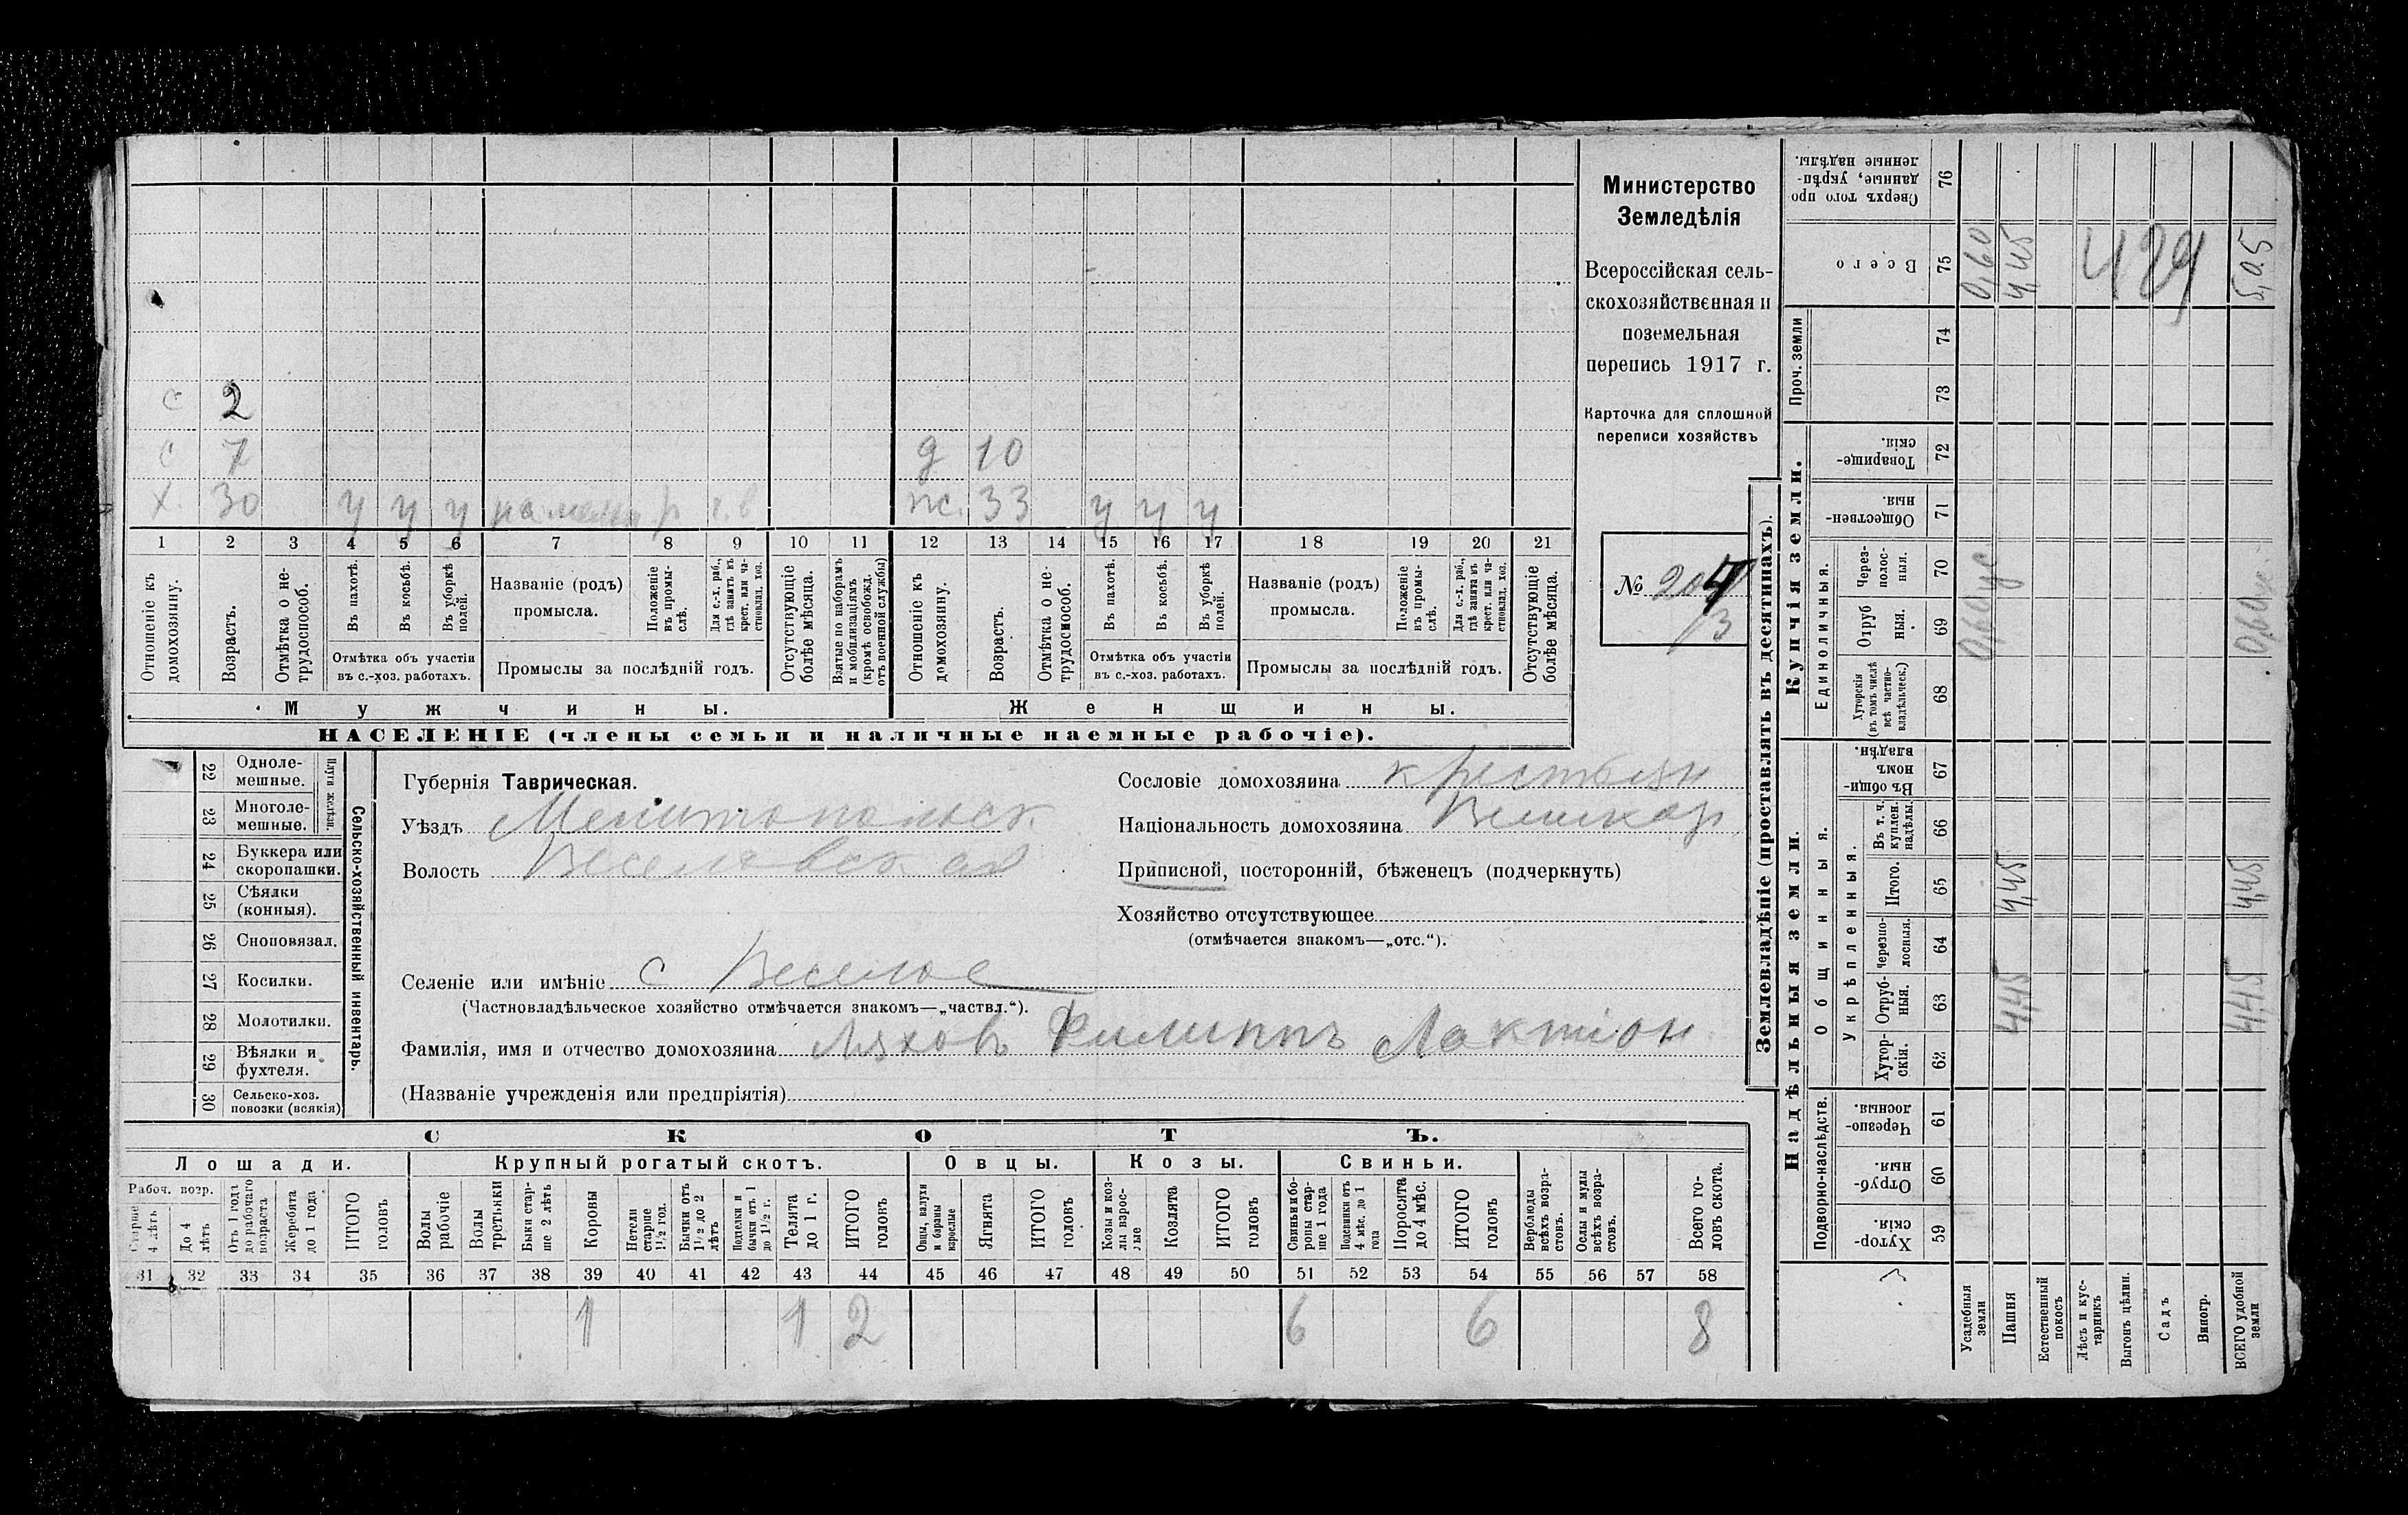 с 2
с 7 д 10
х. 30 у у у р ж. 33 у у у
1 2 3 4 5 6 7 8 9 10 11 12 13 14 15 16 17 18 19 20 21
Отношеніе къ домохозяину.
Возрастъ.
Отмѣтка о не-трудоспособ.
Въ пахотѣ.
Въ косьбѣ.
Въ уборкѣ полей.
Отмѣтка объ участіи
въ с.-хоз. работахъ.
Названіе (родъ)
промысла.
Положеніе въ промы-слѣ.
Для с.-х. раб., гдѣ занятъ въ крест. или ча-стновлад. хоз.
Промыслы за послѣдній годъ.
Отсутствующіе болѣе мѣсяца.
Взятые по наборамъ и мобилизаціямъ (кромѣ освобожд. отъ военной службы)
Отношеніе къ домохозяину.
Возрастъ.
Отмѣтка о не-трудоспособ.
Въ пахотѣ.
Въ косьбѣ.
Въ уборкѣ полей.
Отмѣтка объ участіи
въ с.-хоз. работахъ.
Названіе (родъ)
промысла.
Положеніе въ промы-слѣ.
Для с.-х. раб., гдѣ занятъ въ крест. или ча-стновлад. хоз.
Промыслы за послѣдній годъ.
Отсутствующіе болѣе мѣсяца.
Мужчины.
Женщины.
НАСЕЛЕНІЕ (члены семьи и наличные наемные рабочіе).
Министерство
Земледѣлія
Всероссійская сель-
скохозяйственная и
поземельная
перепись 1917 г.
Карточка для сплошной
переписи хозяйствъ
№ 204
13
22 Одноле-мешные.
23 Многоле-мешные.
Плуги желѣзн.
24 Буккера или скоропашки.
25 Сѣялки (конныя).
26 Сноповязал.
27 Косилки.
28 Молотилки.
29 Вѣялки и фухтеля.
30 Сельско-хоз. повозки (всякія)
Сельско-хозяйственный инвентарь.
Губернія Таврическая.
Уѣздъ Мелитопольск
Волость Веселовская
Селеніе или имѣніе с Веселое
(Частновладѣльческое хозяйство отмѣчается знакомъ—„частвл.“).
Фамилія, имя и отчество домохозяина Ляховъ Филиппъ Лактіон
(Названіе учрежденія или предпріятія)
Сословіе домохозяина крестьян
Національность домохозяина Великор
Приписной, посторонній, бѣженец (подчеркнуть)
Хозяйство отсутствующее
(отмѣчается знакомъ—„отс.“).
СКОТЪ.
Лошади. Крупный рогатый скотъ. Овцы. Козы. Свиньи.
Рабоч. возр.
Старше 4 лѣтъ
До 4 лѣтъ
Отъ 1 года до рабочаго возраста
Жеребята до 1 года
ИТОГО головъ
Волы рабочіе
Волы третьяки
Быки стар-ше 2 лѣтъ
Коровы
Нетели старше 1½ год.
Бычки отъ 1½ до 2 лѣтъ
Подтелки и бычки отъ 1 до 1½ г.
Телята до 1 г.
ИТОГО головъ
Овцы, валухи и бараны взрослые
Ягнята
ИТОГО головъ
Козы и коз-лы взрос-лые
Козлята
ИТОГО головъ
Свиньи и бо-ровы стар-ше 1 года
Подсвинки отъ 4 мѣс. до 1 года
Поросята до 4 мѣс.
ИТОГО головъ
Верблюды всѣхъ возра-стовъ.
Ослы и мулы всѣхъ возра-стовъ.
Всего го-ловъ скота.
31 32 33 34 35 36 37 38 39 40 41 42 43 44 45 46 47 48 49 50 51 52 53 54 55 56 57 58
1 1 2 6 6 8
Землевладѣніе (проставлять въ десятинахъ).
Сверхъ того про данные, укрѣп-ленные надѣлы. 76
Всего 75 0,60 4,45 429 5,05
Проч. земли 74 73
Купчія земли.
Товарище-скія. 72
Обществен-ныя. 71
Единоличныя.
Через-полос-ныя. 70
Отруб ныя. 69
0,60 ус 0,60
Хуторскія (въ томъ числѣ всѣ частно-владѣльческ.) 68
Надѣльныя земли.
Общинныя.
Въ общи-номъ владѣн. 67
Укрѣпленныя.
Въ т. ч. куплен. надѣлы. 66
Итого. 65 4,45 4,45
Черезпо-лосныя 64
Отруб-ныя. 63 4,45 4,45
Хутор-скія. 62
Подворно-наслѣдств.
Черезпо-лосныя. 61
Отруб-ныя. 60
Хутор-скія. 59
Усадебныя земли
Пашня
Естественный покосъ
Лѣсъ и кус-тарникъ
Выгонъ цѣлин.
Садъ
Виногр.
ВСЕГО удобной земли